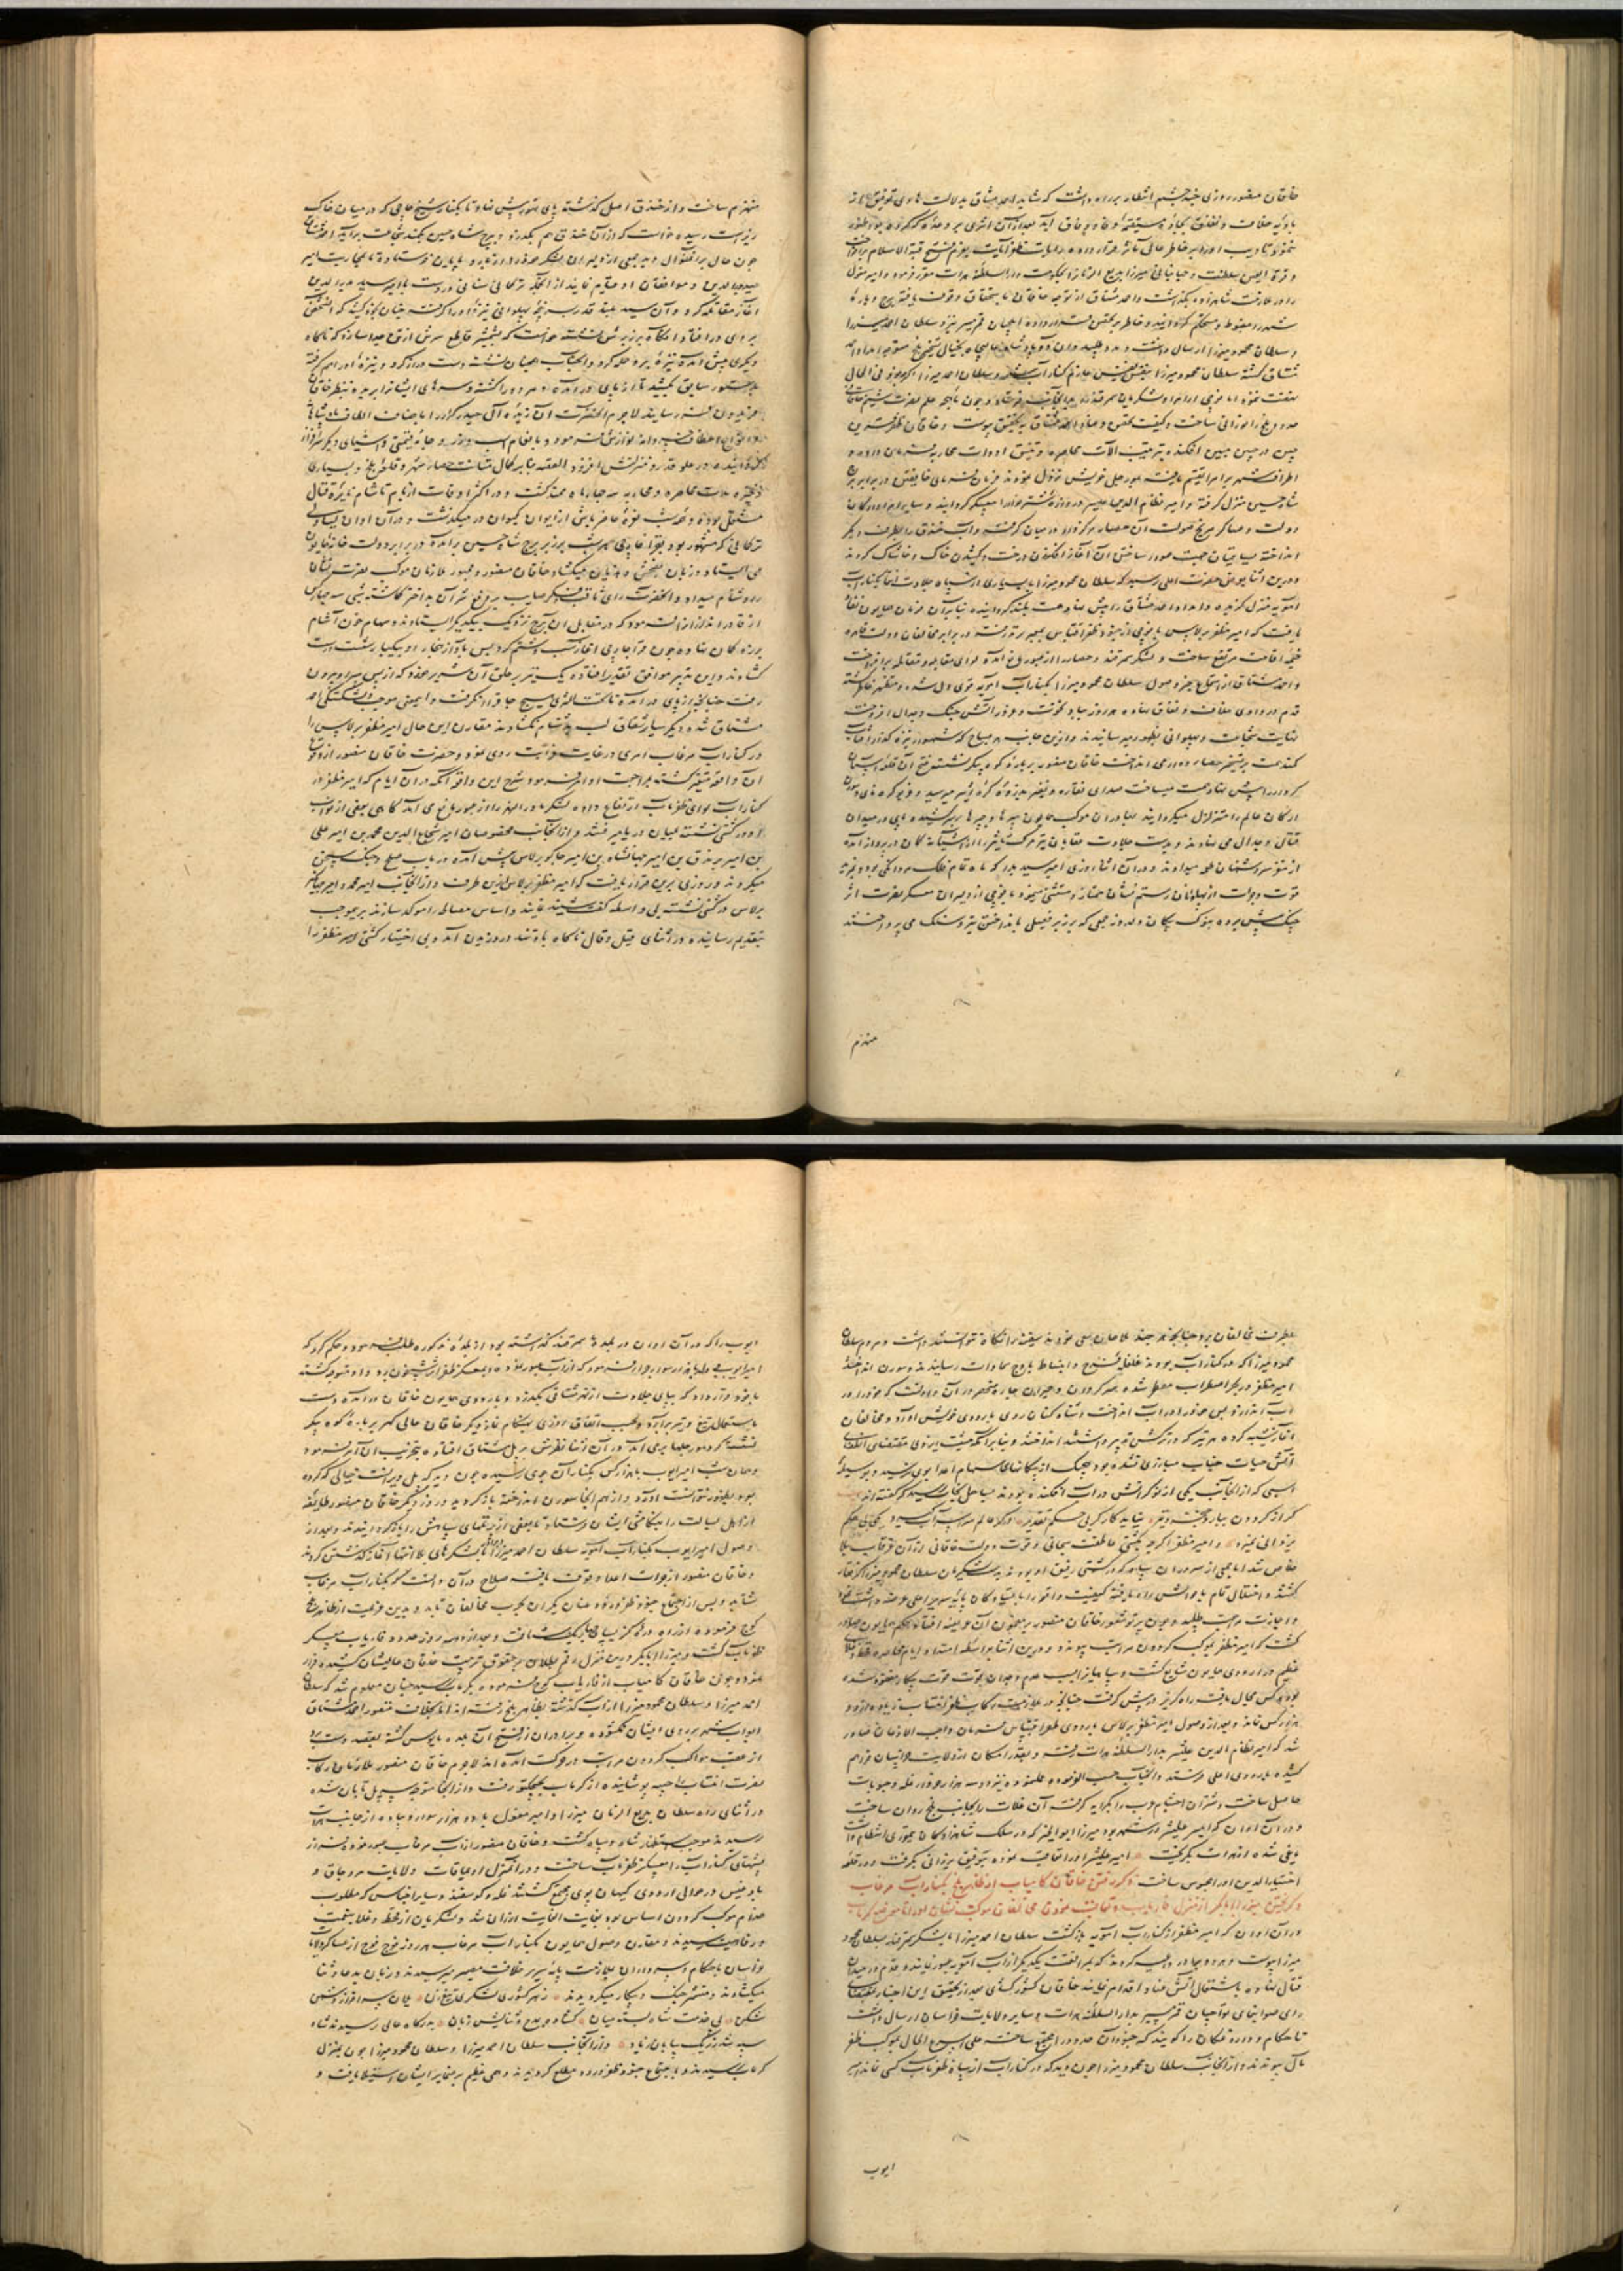 خاقان منصور روزی چند چشم انتظار بر راه داشت که شاید احمد مشتاق بدلالت هادی توفیق از
بادیه خلاف و نفاق بجاده مستقیمه وفا و وفاق آید بعد از آن اثری بر وعده که کرده بود ظهور
ننمود تادیب او را بر خاطر عالی مآثر قرار داده رایات ظفر آیات بعزم فتح قبة الاسلام برافراخت
و قرة العین سلطنت و جهانبانی میرزا بدیع الزمان را بحکومت دار السلطنه هراة مقرر فرمود و امیر مغول
را در ملازمت شاهزاده بگذاشت و احمد مشتاق از توجه خاقان باستحقاق وقوف یافته برج و باره
شهر را مضبوط و مستحکم گردانید و خاطر بر تحصن قرار داده ایلچیان قمر مسیر نزد سلطان احمد میرزا
و سلطان محمود میرزا ارسال داشت و مدد طلبید و آن دو پادشاه عالیجاه بخیال تسخیر بلخ متوجه امداد احمد
مشتاق گشته سلطان محمود میرزا بنفس نفیس عازم کنار آب شد و سلطان احمد میرزا اگرچه در فی الحال
نهضت ننمود اما فوجی از امرا و لشکریان سمرقند بدان جانب فرستاد و چون ماهچه علم نصرت شیم خاقانی
حدود بلخ را نورانی ساخت و کیفیت تحصن و عناد احمد مشتاق به تحقیق پیوست و خاقان ظفر قرین
چین در جبین مبین افکنده بترتیب آلات محاصره و تهیه ادوات محاربه فرمان داده و
اطراف شهر بر امرا تقسیم یافته امور جلی خویش نزول نمودند فرمان فرمای خافقین در برابر برج
شاه حسین منزل گرفته و امیر نظام الدین علیشیر دروازه شترخوار را معسکر گردانید و سایر امرا و ارکان
دولت و عساکر مریخ صولت آن حصار را مرکزوار در میان گرفتند و آب خندق را بطرف دیگر
انداخته سپاهیان جهت هموار ساختن آن آغاز افکندن درخت و کشیدن خاک و خاشاک کردند
و درین اثنا بعرض حضرت اعلی رسید که سلطان محمود میرزا با بسیاری از سپاه جلادت انتما بکنار آب
آمویه منزل گزیده و امداد احمد مشتاق را پیش نهاد همت بلند گردانیده بنابر آن فرمان همایون نفاذ
یافت که امیر مظفر برلاس با فوجی از جنود ظفر اقتباس بمعبر ترمذ رفته در برابر مخالفان دولت قاهره
خیمه اقامت مرتفع ساخت و لشکر سمرقند و حصار را از عبور مانع آمده لوای مقابله و مقاتله برافراخت
و احمد مشتاق از استماع خبر وصول سلطان محمود میرزا بکنار آب آمویه قوی دل شده و مستظهر خاطر گشته
قدم در وادی خلاف و نفاق نهاده هر روز بباد نخوت و غرور آتش جنگ و جدال افروخت
نهایت شجاعت و پهلوانی بظهور میرسانیدند و ازین جانب هر صباح که شهسوار نیزه گذار آفتاب
کمند همت بر تسخیر حصار دواری انداخت خاقان منصور بر باره کوه پیکر نشسته فتح آن قلعه آسمان
کردار را پیش نهاد همت میساخت صدای نقاره و نفیر بذروه کره اثیر میرسید و غریو کره نای و سورن
ارکان عالم را متزلزل میگردانید بهادران موکب همایون سپرها و چپرها بر سر کشیده پای در میدان
قتال و جدال می نهادند و بدست جلادت عقابان تیر مرگ تاثیر را از آشیانه کمان در پرواز آمده
از مغز سر دشمنان طعمه میدادند و در آن اثنا روزی امیر سید بدر که ماه تمام فلک مردانگی بود و بمزید
قوت و جرات از پهلوانان رستم نشان ممتاز و مستثنی مینمود با فوجی از دلیران معسکر نصرت اثر
جنگ پیش برده بنوک پیکان دلدوز جمعی که بر زبر فصیل باند اختن تیر و سنک می پرداختند
منهزم
منهزم ساخت و از خندق اصل گذشته پای تهور پیش نهاد تا بکنار شیخ حاجی که در میان خاک
ریز است رسیده خواست که از آن خندق هم بگذرد و ببرج شاه حسین بکمند شجاعت برآید احمد مشتاق
چون حال برین منوال دید جمعی از دلیران لشکر خود را از باره پایان فرستاد تا بمحاربت امیر
سید بدر الدین و موافقان او قیام نمایند از آنجمله ترکمانی سنانی در دست با امیر سید بدر الدین
آغاز مقاتله کرد و آن سید بلند قدر سرپنجه پهلوانی نیزه او را گرفته چنان بخود کشید که آن شخص
بروی در افتاد آنگاه بر زبر پشتش نشسته خواست که بشمشیر قاطع سرش از تن جدا سازد که ناگاه
دیگری پیش آمده نیزه برو حمله کرد و آنجناب همچنان نشسته دست دراز کرد و نیزه او را هم گرفته
بدستور سابق بکشید تا از پای درآمد و هر دو را کشته و سرهای ایشان را بریده بنظر خاقان
فریدون فر رسانید لاجرم آنحضرت آن زبده آل حیدر کرار را باصناف الطاف پادشاهانه
و انواع اعطاف خسروانه نوازش فرمود و بانعام اسب و زر و جامه قیمتی و اشیای دیگر سرافراز
گردانیده در علو قدر و منزلتش افزود القصه بنابر کمال متانت حصار شهر و قلعه بلخ و بسیاری
ذخیره مدت محاصره و محاربه سه چهار ماه ممتد گشت و در اکثر اوقات از بام تا شام نایره قتال
مشتعل بوده و غریو نعره حاضر باش از ایوان کیوان در میگذشت و در آن اوان یساولی
ترکمانی که مشهور بود بقراچه پری هر شب بر زبر برج شاه حسین برآمده در برابر دولتخانه همایون
می ایستاد و زبان بفحش و هذیان میگشاد و خاقان منصور و جمهور ملازمان موکب نصرت نشان
را دشنام میداد و آنحضرت رای ثاقب و فکر صایب بر دفع شر آن بداختر گماشته شبی سه چهار کس
از قادر اندازان فرمود که در مقابل آن برج نزدیک بیکدیگر ایستادند و سهام خون آشام
بزه کمان نهاده چون قراجه پری آغاز سب و شتم کرد بس با آواز نهنجار او بیکبار شست است
گشادند و این تدبیر موافق تقدیر افتاده یک تیر بر حلق آن شریر خورد که از پس سر او بیرون
رفت چنانچه از پای درآمد تا تحت الثری هیچ جا قرار نگرفت و این معنی موجب دلشکستگی احمد
مشتاق شده دیگر سایر متفقان لب بدشنام نگشادند مقارن این حال امیر مظفر برلاس را
در کنار آب مرغاب امری در غایت غرابت روی نمود و حضرت خاقان منصور از وقوع
آن واقعه متحیر گشته بمراجعت او را فرمود شرح این واقعه آنکه در آن ایام که امیر مظفر در
کنار آب لوای ظفر مآب ارتفاع داده لشکر ماوراء النهر را از عبور مانع می آمد گاهی بعضی از نواب
او در کشتی نشسته بمیان دریا میرفتند و از آنجانب مخصوصان امیر شجاع الدین محمد بن امیر علی
بن امیر برندق بن امیر جهانشاه بن امیر جاکو برلاس پیش آمده در باب صلح و جنگ سخن
میکردند و روزی برین قرار یافت که امیر مظفر برلاس ازین طرف و از آنجانب امیر محمد و امیر جهانگیر
برلاس در کشتی نشسته بی واسطه گفت و شنید نمایند و اساس مصالحه را موکد سازند بر همین موجب
بتقدیم رسانیده در اثنای قیل و قال ناگاه باد تند در وزیدن آمد و بی اختیار کشتی امیر مظفر را
بطرف مخالفان برد چنانچه هر چند ملاحان سعی نمودند سفینه را نگاه نتوانستند داشت و مردم سلطان
محمود میرزا که در کنار آب بودند غلغله فرح و انبساط باوج سماوات رسانیدند و سورن انداختند
امیر مظفر در بحر اضطراب مضطر شده سر گردان و حیران چاره منحصر در آن دانست که خود را در
آب اندازد پس خود را در آب انداخت و شناه کنان روی باردوی خویش آورد و مخالفان
آغاز شیبه کرده هر تیر که در ترکش تدبیر داشتند انداختند و بنابر آنکه مشیت ایزدی مقتضی انطفای
آتش حیات جناب مبارزی نشده بود هیچ یک از پیکانهای سهام اعدا بوی نرسید و بوسیله
اسبی که از آنجانب یکی از نوکرانش در آب افکنده بودند بساحل نجات رسید که گفته اند
گر از گردون ببارد خنجر و تیر نیاید کارگر بی حکم تقدیر وگر عالم سراسر آب گیرد یکی بی حکم
یزدانی نمیرد و امیر مظفر اگرچه بکشتی عاطفت سبحانی و قوت دولت خاقانی از آن غرقاب بلا
خلاص شد اما جمعی از سروران سپاه که در کشتی رفیق او بودند بدست لشکریان سلطان محمود میرزا گرفتار
گشتند و اختلال تمام باحوالش راه یافته کیفیت واقعه را بایستادگان پایه سریر اعلی عرضه داشت نمود
و اجازت مراجعت طلبید و چون پرتو شعور خاقان منصور بر مضمون آن عریضه افتاد حکم همایون صادر
گشت که امیر مظفر بموکب گردون مراتب پیوندد و درین اثنا بواسطه امتداد ایام محاصره قحط و غلای
عظیم در اردوی همایون شایع گشت و سپاهیان را بسبب عدم وجدان قوت قوت پیکار مفقود شده
بود هر کس مجال یافت راه گریز در پیش گرفت چنانچه در ملازمت رکاب ظفر انتساب زیاده از ده
هزار کس نماند و بعد از وصول امیر مظفر برلاس باردوی ظفر اقتباس فرمان واجب الاذعان صادر
شد که امیر نظام الدین علیشیر بدار السلطنه هرات رفته و بقدر امکان از ولایت خراسان فراهم
کشیده باردوی اعلی فرستند و آنجناب حسب الفرموده عمل نموده نزدیک سه هزار خروار غله و حبوبات
حاصل ساخت و شتران احشام عرب را بکرایه گرفته آن غلات را بجانب بلخ روان ساخت
و در آن اوان که امیر علیشیر در شهر بود میرزا ابوالخیر که در سلک شاهزادگان تیموری انتظام داشت
یاغی شده از هراة بگریخت امیر علیشیر او را تعاقب نموده بتوفیق یزدانی بگرفت و در قلعه
اختیار الدین او را محبوس ساخت ذکر رفتن خاقان کامیاب از ظاهر بلخ بکنار آب مرغاب
و گریختن میرزا ابابکر از منزل فاریاب و تعاقب نمودن مخالفان موکب نشان او را تا موضع کرباب
در آن اوان که امیر مظفر از کنار آب آمویه بازگشت سلطان احمد میرزا با لشکر سمرقند بسلطان محمود
میرزا پیوست و هر دو برادر داعیه کردند که بموافقت یکدیگر از آب آمویه عبور نمایند و قدم در میدان
قتال نهاده باشتعال آتش عناد اقدام نمایند خاقان کشورگشای بعد از تحقیق این اخبار بمقتضای
رای صوابنمای تواچیان قمر مسیر بدار السلطنه هرات و سایر ولایات خراسان ارسال داشت
تا حکام و داروغگان را گویند که جنود آن حدود را مجتمع ساخته علی اسرع الحال بموکب ظفر
مآل پیوندند و از آنجانب سلطان محمود میرزا چون دید که در کنار آب از سپاه ظفر مآب کسی نماند امیر
ایوب
ایوب را که در آن اوان در بلده سمرقند گذاشته بود از بلده مذکوره طلب فرمود و حکم کرد که
امیر ایوب با ده هزار سوار جرار از آب عبور نموده و بمعسکر ظفر اثر شبیخون برد و او متوجه گشته
با خود قرار داد که بپای جلادت از نهر مشتاقی بگذرد و باردوی همایون خاقان درآمده دست
باستعمال تیغ و تیر برآرد و بحسب اتفاق روزی بهنگام نماز دیگر خاقان عالی گهر بر باره کوه پیکر
نشسته گرد مورچلها برمی آمد در آن اثنا نظرش بر پل مشتاق افتاده بتخریب آن امر فرمود
و همان شب امیر ایوب با هزار کس بکنار آن جوی رسیده چون دید که پل ویرانست خیالی که کرده
بود بظهور نتوانست آورد و از هم آنجا سورن انداخته بازگردید و روز دیگر خاقان منصور طایفه
از اهل بسالت را بتکامشی ایشان فرستاد تا بعضی از یرتمهای سپاهش را بازگردانیدند و بعد از
وصول امیر ایوب بکنار آب آمویه سلطان احمد میرزا با لشکرهای بلا انتها آغاز گذشتن کردند
و خاقان منصور از جرات اعدا وقوف یافته صلاح در آن دانست که بکنار آب مرغاب
شتابد و پس از اجتماع جنود ظفر ورود عنان یکران بحرب مخالفان تابد و بدین عزیمت از ظاهر بلخ
کوچ فرموده از راه دره گز بسان چهاریک شتافت و بعد از دو سه روز حدود فاریاب معسکر
ظفر مآب گشت و میرزا ابابکر درین منزل رقم بطلان بر حقوق تربیت خاقان عالیشان کشیده فرار
نمود و چون خاقان کامیاب از فاریاب کوچ فرموده به کرباب رسید چنان معلوم شد که سلطان
احمد میرزا و سلطان محمود میرزا از آب گذشته بظاهر بلخ رفته اند اما بخلاف متصور احمد مشتاق
ابواب شهر بر روی ایشان نگشوده و برادران از فتح آن بلده مایوس گشته بقصد دست برد
از عقب مواکب گردون مراتب در حرکت آمده اند لاجرم خاقان منصور ملازمان رکاب
نصرت انتساب را جیبه پوشانیده از کرباب بچیچکتو رفت و از آنجا متوجه سر پل تابان شده
در اثنای راه سلطان بدیع الزمان میرزا و امیر مغول با دو هزار سوار و پیاده از جانب هراة
رسیدند موجب استظهار شاه و سپاه گشت و خاقان منصور از آب مرغاب عبور نموده فراز
پشتهای کنار آب را معسکر ظفر مآب ساخت و در آن منزل ارتفاقات ولایات مرو جاق و
بادغیس در حوالی اردوی کیهان پوی مجتمع گشتند غله و گوسفند و سایر اجناس که مطلوب
خدام موکب گردون اساس بود بغایت الغایت ارزان شد و لشکریان از قحط و غلا بنعمت
و رفاهیت رسیدند و مقارن وصول همایون بکنار آب مرغاب هر روز فوج فوج از عساکر ولایات
خراسان باحکام و سرداران بملازمت پایه سریر خلافت مصیر میرسیدند و زبان بدعا و ثنا
میگشادند و مستعد جنگ و پیکار میگردیدند ز هر کشوری لشکری تیغ زن یلان سرافراز دشمن
شکن پی خدمت شاه بسته میان گشاده بمدح و ثنایش زبان بدرگاه عالی رسیدند شاد
سپه شد نزدیک بپایان زیاد و از آنجانب سلطان احمد میرزا و سلطان محمود میرزا چون بمنزل
کرباب رسیدند و باجتماع جنود ظفر ورود مطلع گردیدند وهمی عظیم بر ضمایر ایشان استیلا یافت و